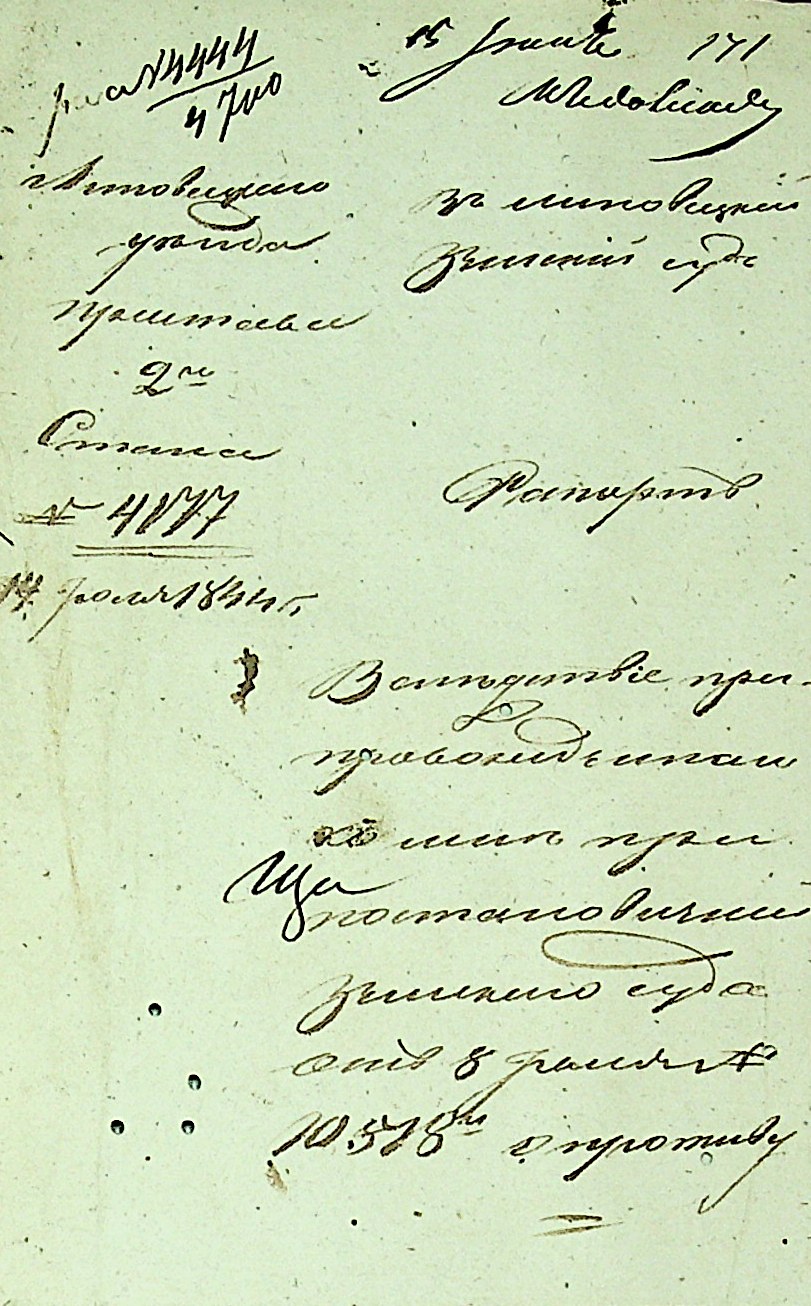 № 4444
4700
15 Июля 171
Липовецкаго
уезда
Пристава
2го
Стана
№ 4177
14 юоля 1844 г.
Въ Липовецкий
Земский судъ
Рапортъ
Вследствіе пре-
провожденнаго
ко мне при
постановлении
Земскаго суда
отъ 8 июля №
10518м о противу